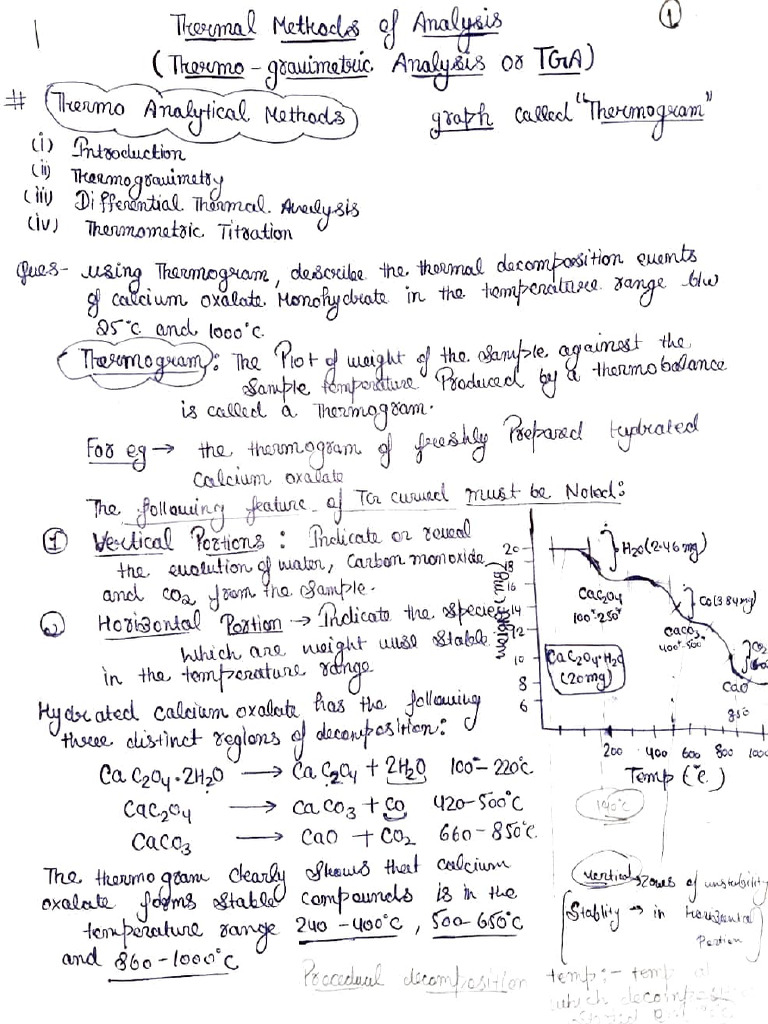 1
Thermal Methods of Analysis
(Thermo-gravimetric Analysis or TGA)
# Thermo Analytical Methods
graph called "Thermogram"
(i) Introduction
(ii) Thermogravimetry
(iii) Differential Thermal Analysis
(iv) Thermometric Titration
Ques- using Thermogram, describe the thermal decomposition events
of calcium oxalate Monohydrate in the temperature range b/w
25°C and 1000°C
Thermogram: The Plot of weight of the sample against the
sample temperature Produced by a thermobalance
is called a Thermogram.
For eg → the thermogram of freshly Prepared hydrated
Calcium oxalate
The following feature of TG curved must be Noted:
① Vertical Portions: Indicate or reveal
the evolution of water, Carbon monoxide
and CO2 from the sample.
② Horizontal Portion → Indicate the species
which are weight wise stable
in the temperature range
Hydrated calcium oxalate has the following
three distinct regions of decomposition:
CaC2O4·2H2O → CaC2O4 + 2H2O 100°-220°C
CaC2O4 → CaCO3 + CO 420-500°C
CaCO3 → CaO + CO2 660-850°C
The thermogram clearly shows that calcium
oxalate forms stable compounds is in the
temperature range 240-400°C, 500-650°C
and 860-1000°C
20
18
16
14
12
10
8
6
(mg)
H2O (2.46 mg)
CaC2O4
100°-250°
CO (3.84 mg)
CaCO3
400°-500°
CO2
CaO
850
CaC2O4·H2O
(20mg)
200 400 600 800 1000
Temp (°c.)
140°C
vertical → Zones of unstability
Stablity → in Horizontal
Portion
Procedual decomposition temp:- temp at
which decomposition